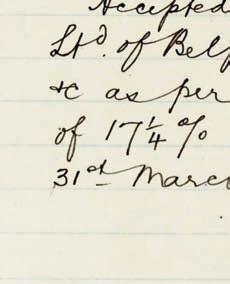 Accepted
Ltd. of Belf
&c as per
of 17 1/4 %
31st March